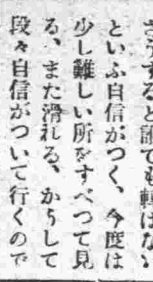 さうすると誰でも轉ばない
といふ自信がつく、今度は
少し難しい所をすべつて見
る、また滑れる、かうして
段々自信がついて行くので